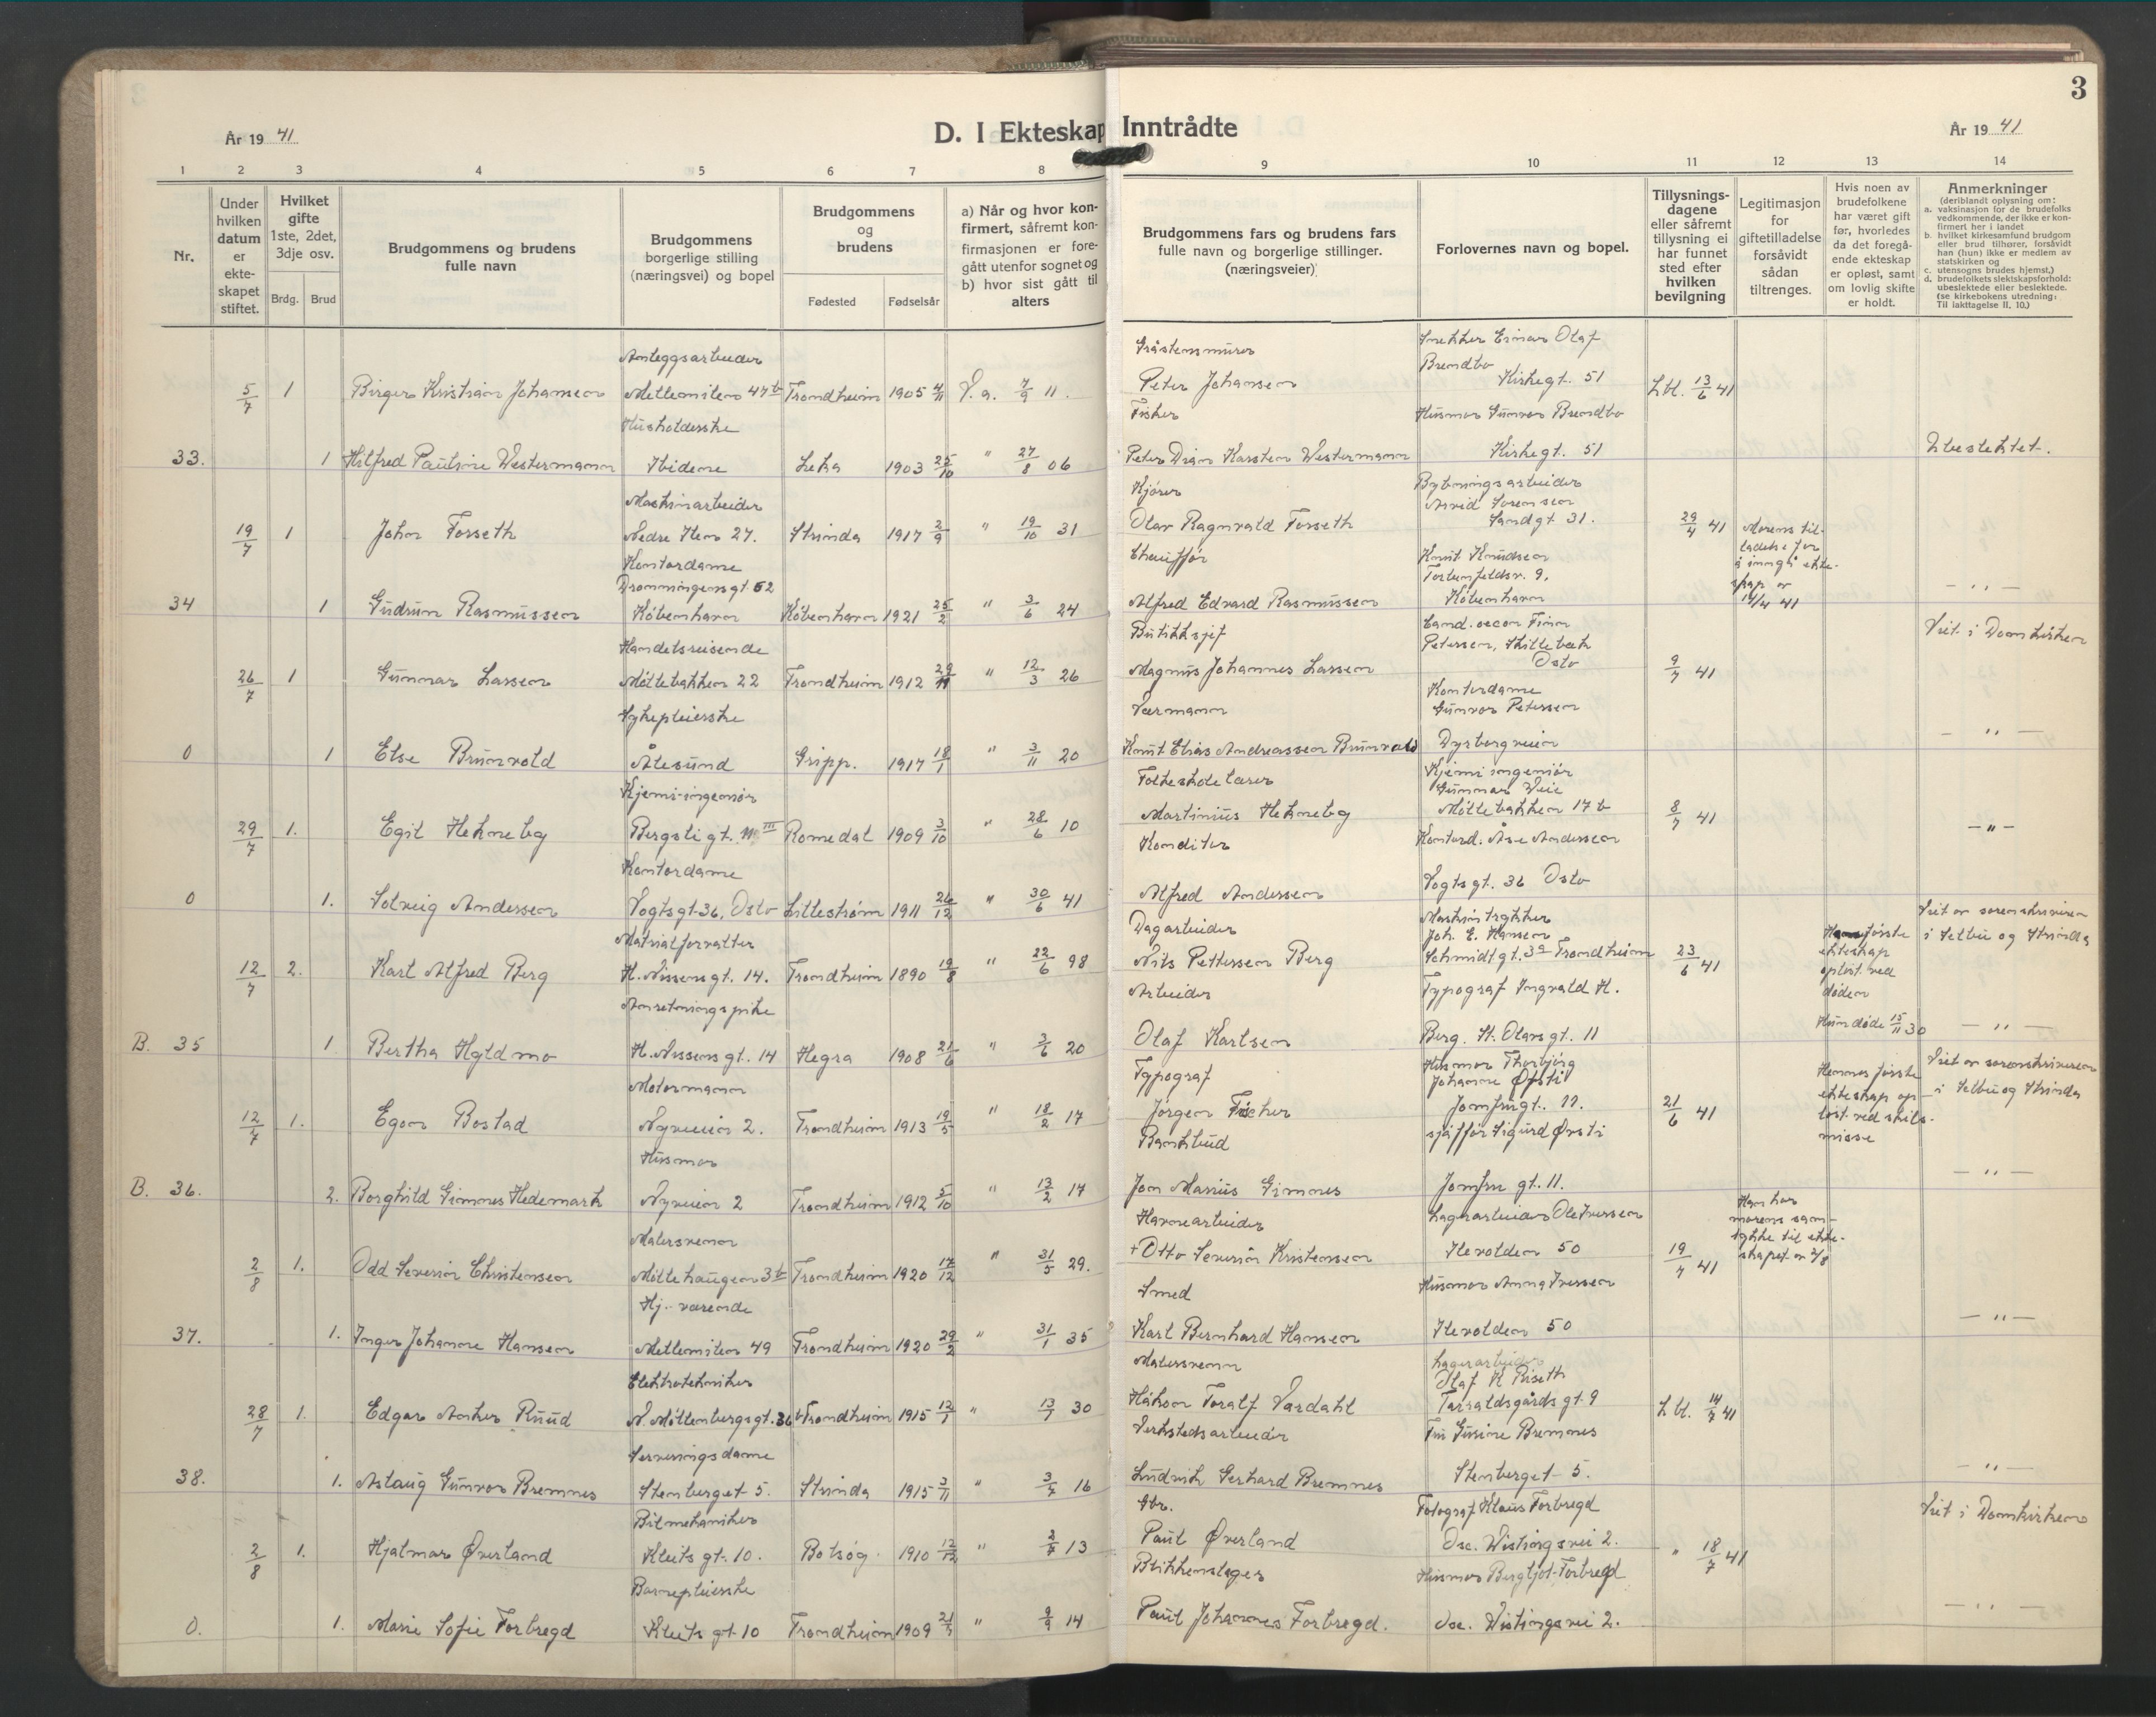 3
År 1941
D. I Ekteskap Inntrådte
År 1941
1 2 3 4 5 6 7 8 9 10 11 12 13 14
Nr.
Under hvilken datum er ekteskapet stiftet.
Hvilket gifte 1ste, 2det, 3dje osv.
Brdg. Brud
Brudgommens og brudens fulle navn
Brudgommens borgerlige stilling (næringsvei) og bopel
Brudgommens og brudens
Fødested Fødselsår
a) Når og hvor konfirmert, såfremt konfirmasjonen er foregått utenfor sognet og b) hvor sist gått til alters
Brudgommens fars og brudens fars fulle navn og borgerlige stillinger. (næringsveier)
Forlovernes navn og bopel.
Tillysningsdagene eller såfremt tillysning ei har funnet sted efter hvilken bevilgning
Legitimasjon for giftetilladelse forsåvidt sådan tiltrenges.
Hvis noen av brudefolkene har været gift før, hvorledes da det foregående ekteskap er opløst, samt om lovlig skifte er holdt.
Anmerkninger
(deriblandt oplysning om:
a. vaksinasjon for de brudefolks vedkommende, der ikke er konfirmert her i landet
b. hvilket kirkesamfund brudgom eller brud tilhører, forsåvidt han (hun) ikke er medlem av statskirken og
c. utensogns brudes hjemst.)
d. brudefolkets slektskapsforhold: ubeslektede eller beslektede. (se kirkebokens utredning: Til iakttagelse II, 10.)
Anleggsarbeider Gråstensmurer Snekker Einar Olaf Brendbo
5/7 1 Birger Kristian Johansen Mellemilen 47b Trondheim 1905 4/11 V.a. 7/9 11. Peter Johansen Kirkegt. 51 L.bl. 13/6 41
Husholderske Fisker Husmor Gunvor Brendbo
33. 1 Hilfred Pauline Westermann Ibidem Leka 1903 25/10 " 27/8 06 Peter Dian Karsten Westermann Kirkegt. 51 Ubeslektet.
Maskinarbeider Kjører Bybningsarbeider Arvid Sorensen
19/7 1 John Forseth Nedre Ilen 27. Strinda 1917 2/9 " 19/10 31 Olav Ragnvald Forseth Sandgt. 31. 29/4 41 Morens tilladelse for å inngå ekteskap er 14/4 41
Kontordame Dronningensgt 52 Chauffør Knut Knudsen Tordenskjoldsv. 9.
34 1 Gudrun Rasmussen København København 1921 25/2 " 3/6 24 Alfred Edvard Rasmussen København — " —
Handelsreisende Butikksjef Cand. oecon Finn Petersen, Skillebæk Viet i Domkirken
26/7 1 Gunnar Lassen Møllebakken 22 Trondheim 1912 29/11 " 12/3 26 Magnus Johannes Lassen Oslo 9/7 41
Sykepleierske Kontordame Gunvor Petersen
0 1 Else Brunvold Ålesund Gripp. 1917 18/1 " 3/11 20 Knut Elias Andreassen Brunvold Dyrborgveien — " —
Kjemi-ingeniør Folkeskolelærer Kjemiingeniør Gunnar Veie
29/7 1. Egil Hekneby Bergsligt. III Romedal 1909 3/10 " 28/6 10 Martinius Hekneby Møllebakken 17b 8/7 41 — " —
Kontordame Konditor Kontord. Åse Andersen
0 1. Solveig Andersen Vogtsgt. 36, Oslo Lillestrøm 1911 26/12 " 30/6 41 Alfred Andersen Vogtsgt. 36 Oslo
Matrialforvalter Dagarbeider Maskintrykker Joh. E. Hansen Viet av sorenskriveren i Selbu og Strinda
12/7 2. Karl Alfred Berg H. Nissensgt. 14. Trondheim 1890 19/8 " 22/6 98 Nils Pettersen Berg Schmidtgt. 3a Trondheim 23/6 41 første ekteskap opløst ved døden
Anretningspike Arbeider Typograf Ingvald H.
B. 35 1 Bertha Hyldmo H. Nissensgt. 14 Hegra 1908 21/6 " 3/6 20 Olaf Karlsen Berg. St. Olavsgt. 11 Hun døde 15/11 30 — " —
Motormann Typograf Husmor Thorbjørg Johanne Øfsti Viet av sorenskriveren i Selbu og Strinda
12/7 1. Egon Bostad Nyveien 2. Trondheim 1913 19/5 " 18/2 17 Jørgen Fischer Jomfrugt. 11. 21/6 41 Hennes første ekteskap opløst ved skilsmisse
Husmor Bankbud sjåffør Sigurd Øvsti
B. 36. 2. Borghild Gimnes Hedemark Nyveien 2 Trondheim 1912 5/10 " 13/2 17 Jon Marius Gimnes Jomfrugt. 11. — " —
Malersvenn Havnearbeider Lagerarbeider Ole Iversen
2/8 1. Odd Severin Christensen Møllehaugen 3b Trondheim 1920 17/12 " 31/5 29. + Otto Severin Kristensen Ilevolden 50 19/7 41 Han har morens samtykke til ekteskapet av 2/8
Hj. værende Smed Husmor Anna Iversen
37. 1. Inger Johanne Hansen Mellemilen 49 Trondheim 1920 29/2 " 31/1 35 Karl Bernhard Hansen Ilevolden 50 — " —
Elektrotekniker Malersvenn Lagerarbeider Olaf K Riseth
28/7 1. Edgar Anker Ruud N. Møllenbergsgt. 36b Trondheim 1915 12/1 " 13/7 30 Håkon Toralf Vardahl Tarvaldsgårdsgt. 9 L.bl. 14/7 41
Serveringsdame Verkstedsarbeider Fru Gusine Bremnes
38. 1. Aslaug Gunvor Bremnes Stenberget 5. Strinda 1915 3/11 " 3/7 16 Ludvik Gerhard Bremnes Stenberget 5. — " —
Bilmekaniker Gbr. Fotograf Klaus Forbregd Viet i Domkirken
2/8 1. Hjalmar Øverland Kleits gt. 10. Bolsøy 1910 12/12 " 2/7 13 Paul Øverland Osc. Wistingsvei 2. " 18/7 41
Barnepleierske Blikkenslager Husmor Bergljot Forbregd
0. 1. Marie Sofie Forbregd Kleits gt. 10 Trondheim 1909 21/3 " 9/9 14 Paul Johannes Forbregd. Osc. Wistingsvei 2. — " —